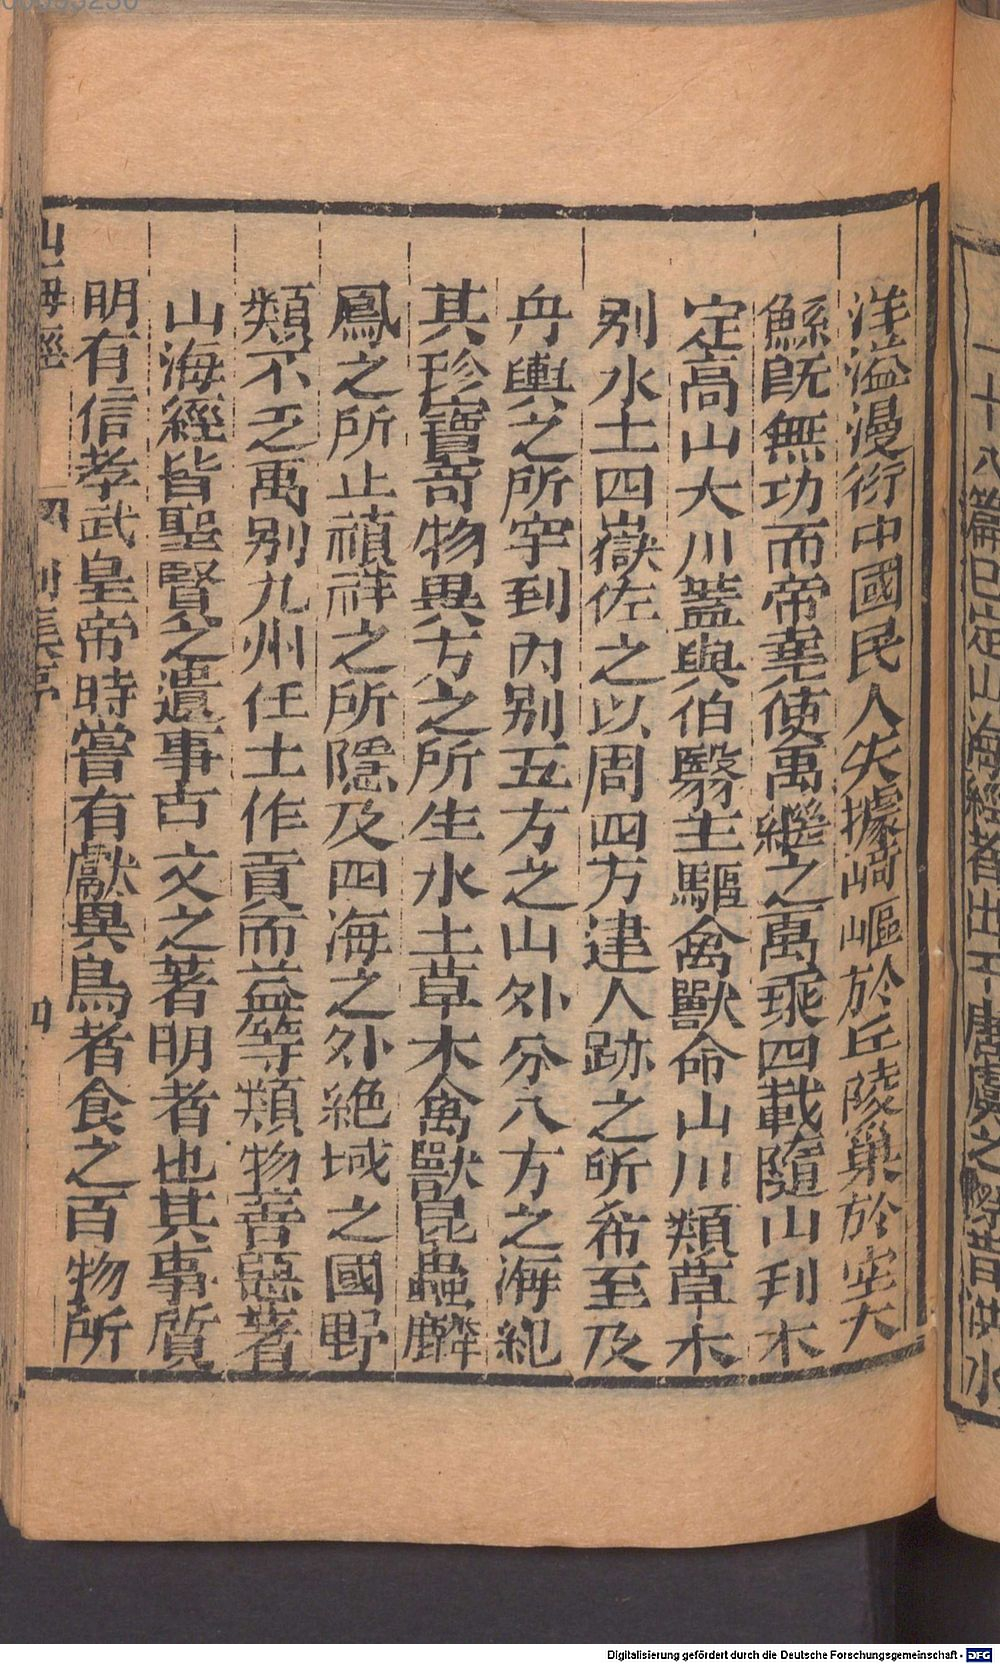 一十八篇已定山海經者出于唐虞之際昔洪水
洋溢漫衍中國民人失據崎嶇於丘陵巢於宔大
鯀旣無功而帝堯使禹繼之禹乘四載隨山刊木
定高山大川蓋與伯翳主驅禽獸命山川類草木
别水土四嶽佐之以周四方逮人跡之所希至及
舟輿之所罕到內别五方之山外分八方之海紀
其珍寶奇物異方之所生水土草木禽獸昆蟲麟
鳳之所止禎祥之所隱及四海之外絶域之國野
類不乏禹别九州任土作貢而益等類物善惡著
山海經皆聖賢之遺事古文之著明者也其事質
明有信孝武皇帝時嘗有獻異鳥者食之百物所
山海經
四
Digitalisierung gefördert durch die Deutsche Forschungsgemeinschaft - DFG